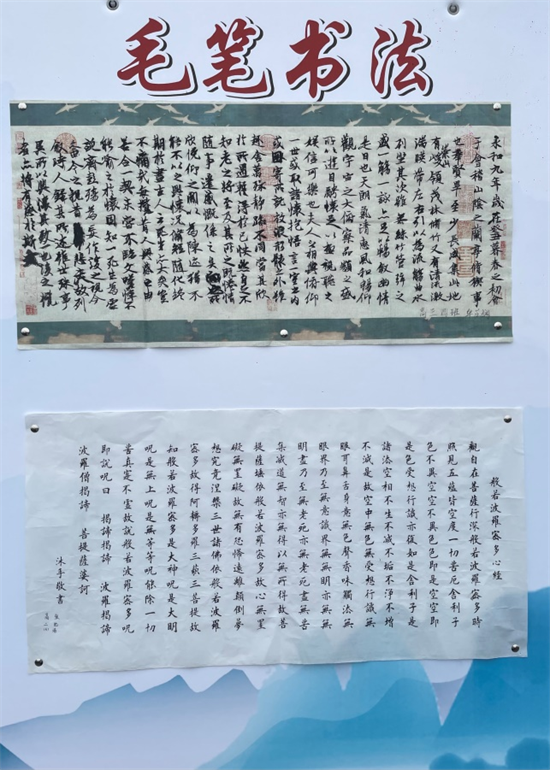 毛笔书法
永和九年歲在癸丑暮春之初會
于會稽山陰之蘭亭脩稧事
也羣賢畢至少長咸集此地
有崇山峻領茂林脩竹又有清流激
湍暎帶左右引以為流觴曲水
列坐其次雖無絲竹管弦之
盛一觴一詠亦足以暢敘幽情
是日也天朗氣清惠風和暢仰
觀宇宙之大俯察品類之盛
所以遊目騁懷足以極視聽之
娛信可樂也夫人之相與俯仰
一世或取諸懷抱悟言一室之內
或因寄所託放浪形骸之外雖
趣舍萬殊靜躁不同當其欣
於所遇暫得於己快然自足不
知老之將至及其所之既惓情
隨事遷感慨係之矣向之所
欣俛仰之閒以為陳迹猶不
能不以之興懷況脩短隨化終
期於盡古人云死生亦大矣豈
不痛哉每攬昔人興感之由
若合一契未嘗不臨文嗟悼不
能喻之於懷固知一死生為虛
誕齊彭殤為妄作後之視今
亦由今之視昔悲夫故列
敘時人錄其所述雖世殊事
異所以興懷其致一也後之攬
者亦將有感於斯文
般若波羅密多心經
觀自在菩薩行深般若波羅密多時
照見五蘊皆空度一切苦厄舍利子
色不異空空不異色色即是空空即
是色受想行識亦復如是舍利子是
諸法空相不生不滅不垢不淨不增
不減是故空中無色無受想行識無
眼耳鼻舌身意無色聲香味觸法無
眼界乃至無意識界無無明亦無無
明盡乃至無老死亦無老死盡無苦
集滅道無智亦無得以無所得故菩
提薩埵依般若波羅密多故心無罣
礙無罣礙故無有恐怖遠離顛倒夢
想究竟涅槃三世諸佛依般若波羅
密多故得阿耨多羅三藐三菩提故
知般若波羅密多是大神呪是大明
呪是無上呪是無等等呪能除一切
苦真實不虛故說般若波羅密多呪
即說呪曰 揭諦揭諦 波羅揭諦
波羅僧揭諦 菩提薩婆訶
沐手敬書